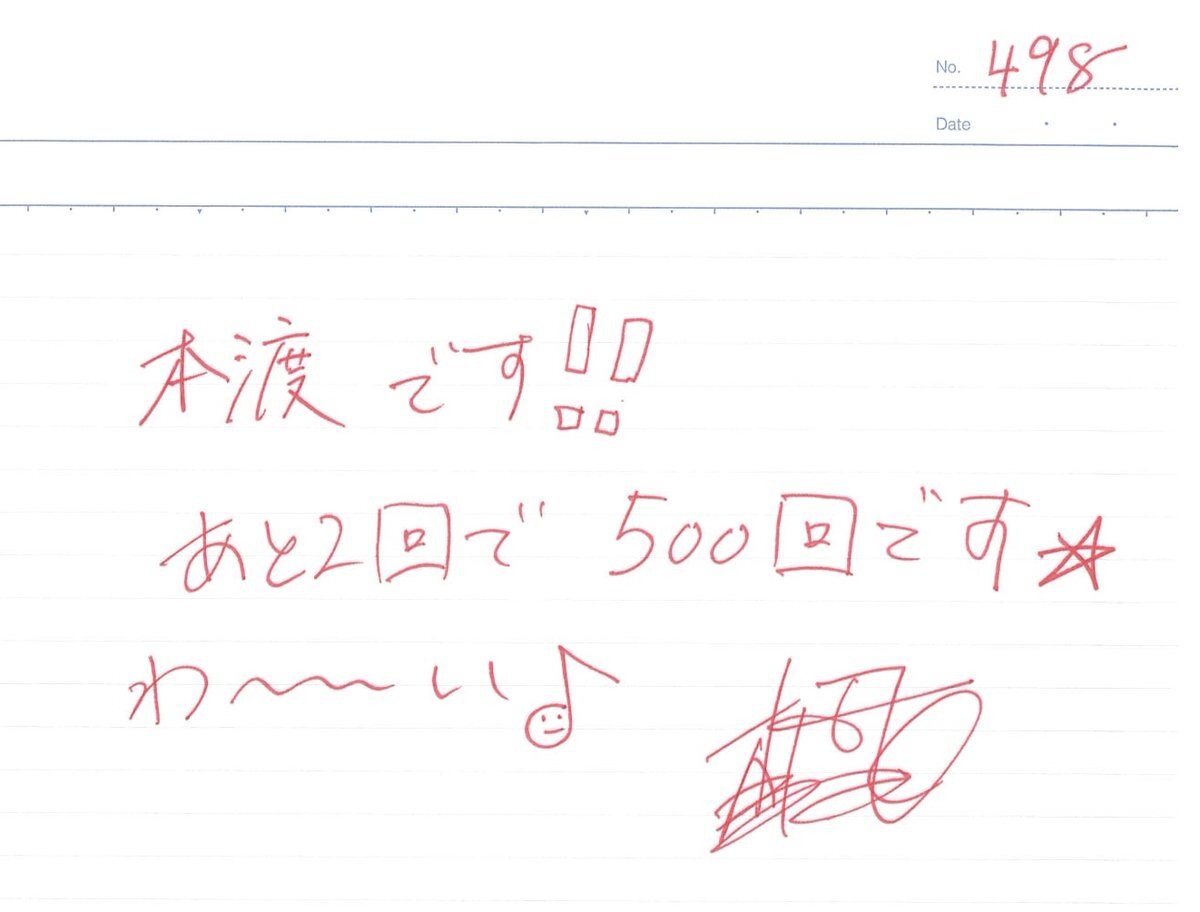 No. 498
Date
本渡です!!
あと2回で500回です☆
わ〜〜い♪